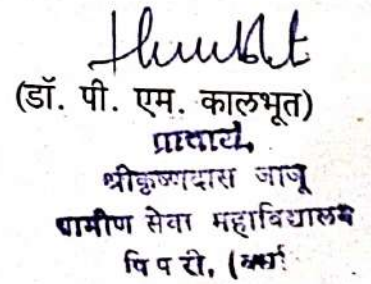 (डॉ. पी. एम. कालभूत)
प्राचार्य,
श्रीकृष्णदास जाजू
ग्रामीण सेवा महाविद्यालय
पिपरी, (वर्धा)